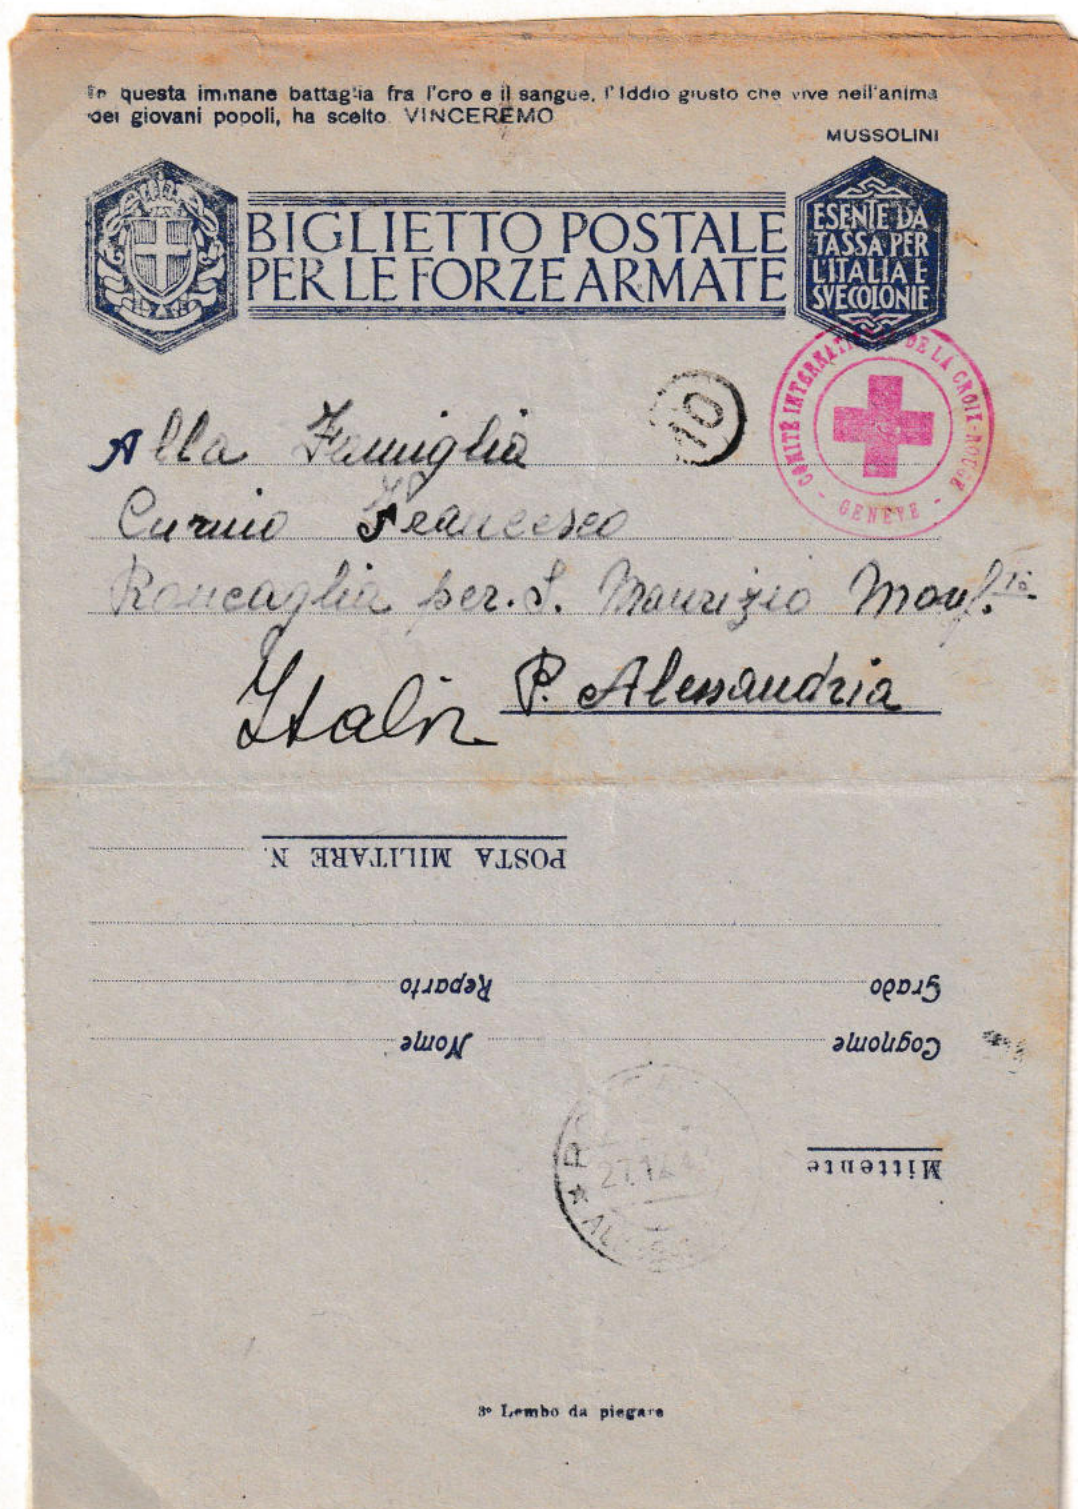 In questa immane battaglia fra l'oro e il sangue, l'Iddio giusto che vive nell'anima
dei giovani popoli, ha scelto. VINCEREMO
MUSSOLINI
BIGLIETTO POSTALE
PER LE FORZE ARMATE
ESENTE DA
TASSA PER
L'ITALIA E
SVE COLONIE
COMITÉ INTERNATIONAL DE LA CROIX-ROUGE
- GENEVE -
10
Alla Famiglia
Francesco
Roncaglia per. S. Maurizio Monf.to
Italia P. Alessandria
POSTA MILITARE N.
Grado Reparto
Cognome Nome
Mittente
27.12.4
3º Lembo da piegare